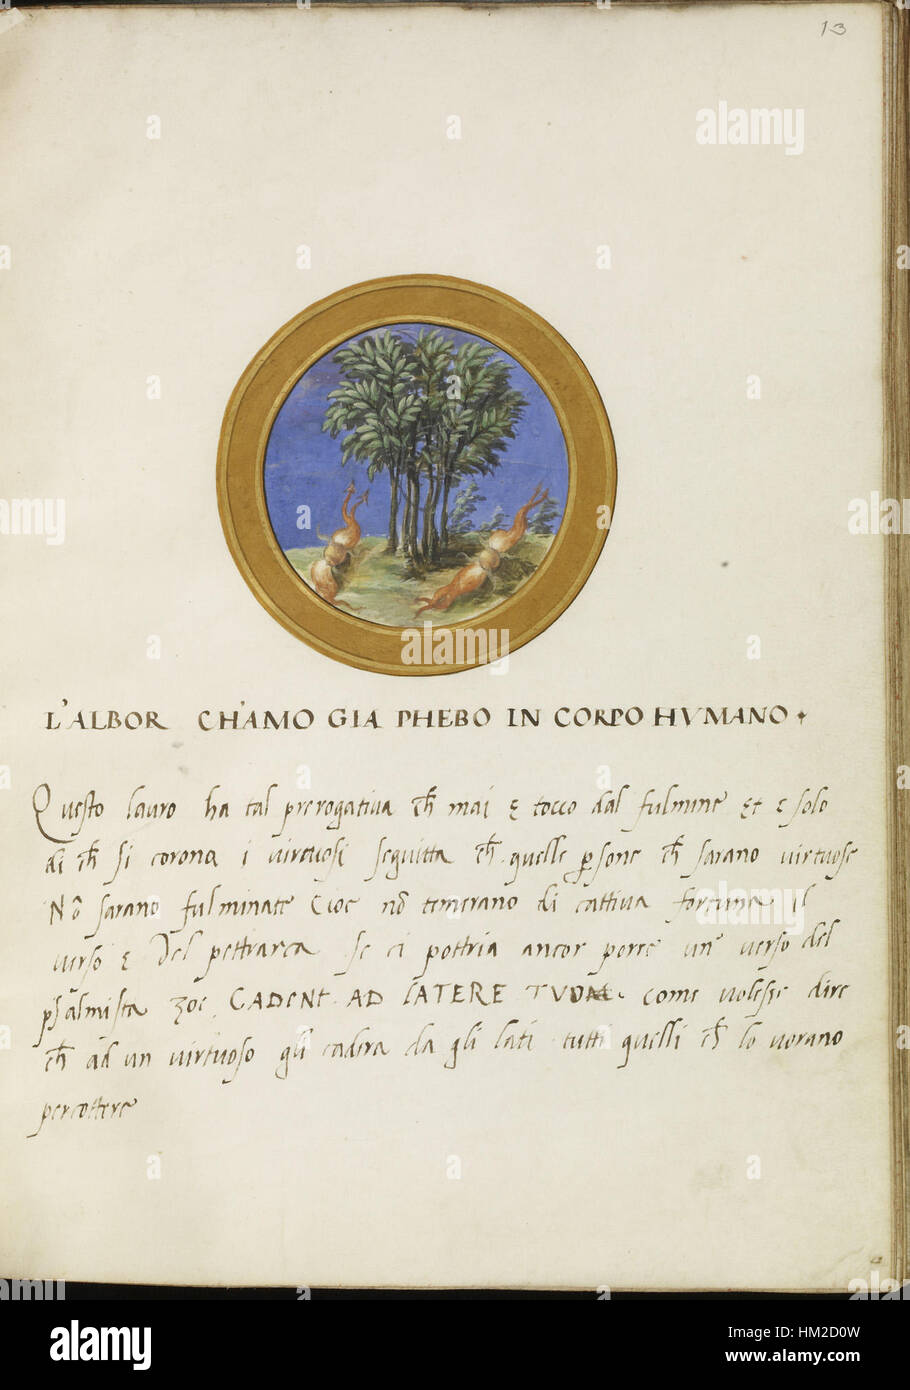 13
L'ALBOR CH'AMO GIA PHEBO IN CORPO HVMANO
Questo lauro ha tal prerogativa ch̄ mai ę tocco dal fulmine et e solo
di ch̄ si corona i virtuosi seguitta ch̄ quelle p̱sone ch̄ sarano virtuose
Nō sarano fulminate Cioe nō temerano di cattiva fortuna il
verso ę Del pettrarca se ci pottria ancor porre un verso del
psalmista zoe CADENT AD LATERE TVOM. come volesse dire
ch̄ ad un virtuoso gli cadera da gli lati tutti quelli ch̄ lo vorano
percottere
alamy
alamy
alamy
a
alamy
Image ID: HM2D0W
www.alamy.com